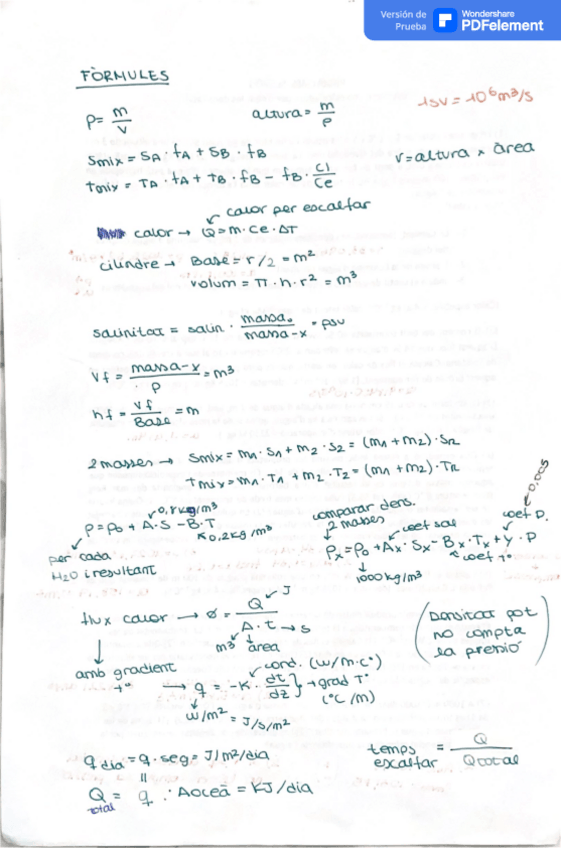 Versión de Prueba Wondershare PDFelement
FÒRMULES
1SV = 10⁶ m³/s
ρ = m/V altura = m/ρ
Smix = SA · fA + SB · fB
V = altura × àrea
Tmix = TA · fA + TB · fB - fB · CL/Ce
calor per escalfar
calor → Q = m · Ce · ΔT
cilindre → Base = r/2 = m²
volum = π · h · r² = m³
salinitat = salin · massa₀/massa-x = psu
Vf = massa-x/ρ = m³
hf = Vf/Base = m
2 masses → Smix = m₁ · S₁ + m₂ · S₂ = (m₁ + m₂) · SR
Tmix = m₁ · T₁ + m₂ · T₂ = (m₁ + m₂) · TR
0,8 kg/m³
ρ = ρ₀ + A · S - B · T
0,2 kg/m³
per cada
H₂O i resultant
comparar dens.
2 mases
coef sal
coef P.
0.005
ρx = ρ₀ + Ax · Sx - Bx · Tx + y · P
coef T°
1000 kg/m³
flux calor → Ø = Q/A · t → s
J
m³ àrea
(Densitat pot
no compta
la pressió)
amb gradient
T°
cond. (W/m·C°)
→ q = -K · dt/dz } → grad T°
(°C/m)
W/m² = J/s/m²
q dia = q · seg = J/m²/dia
temps escalfar = Q/Q total
Q total = q · A oceà = KJ/dia